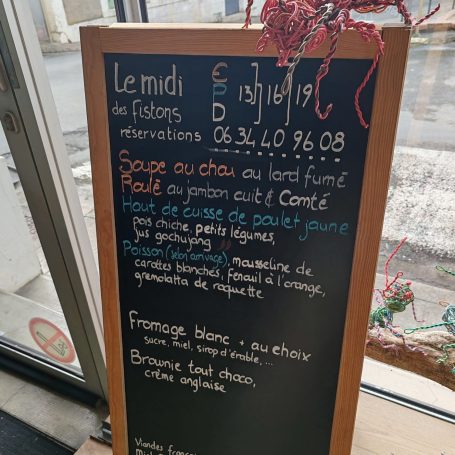 Le midi
des fistons
E
P
D
13] 16] 19
réservations 06 34 40 96 08
Soupe au chou au lard fumé
Roulé au jambon cuit & Comté
Haut de cuisse de poulet jaune
pois chiche, petits légumes,
jus gochujang
Poisson (selon arrivage), mousseline de
carottes blanches, fenouil à l'orange,
gremolatta de roquette
Fromage blanc + au choix
sucre, miel, sirop d'érable, ...
Brownie tout choco,
crème anglaise
Viandes